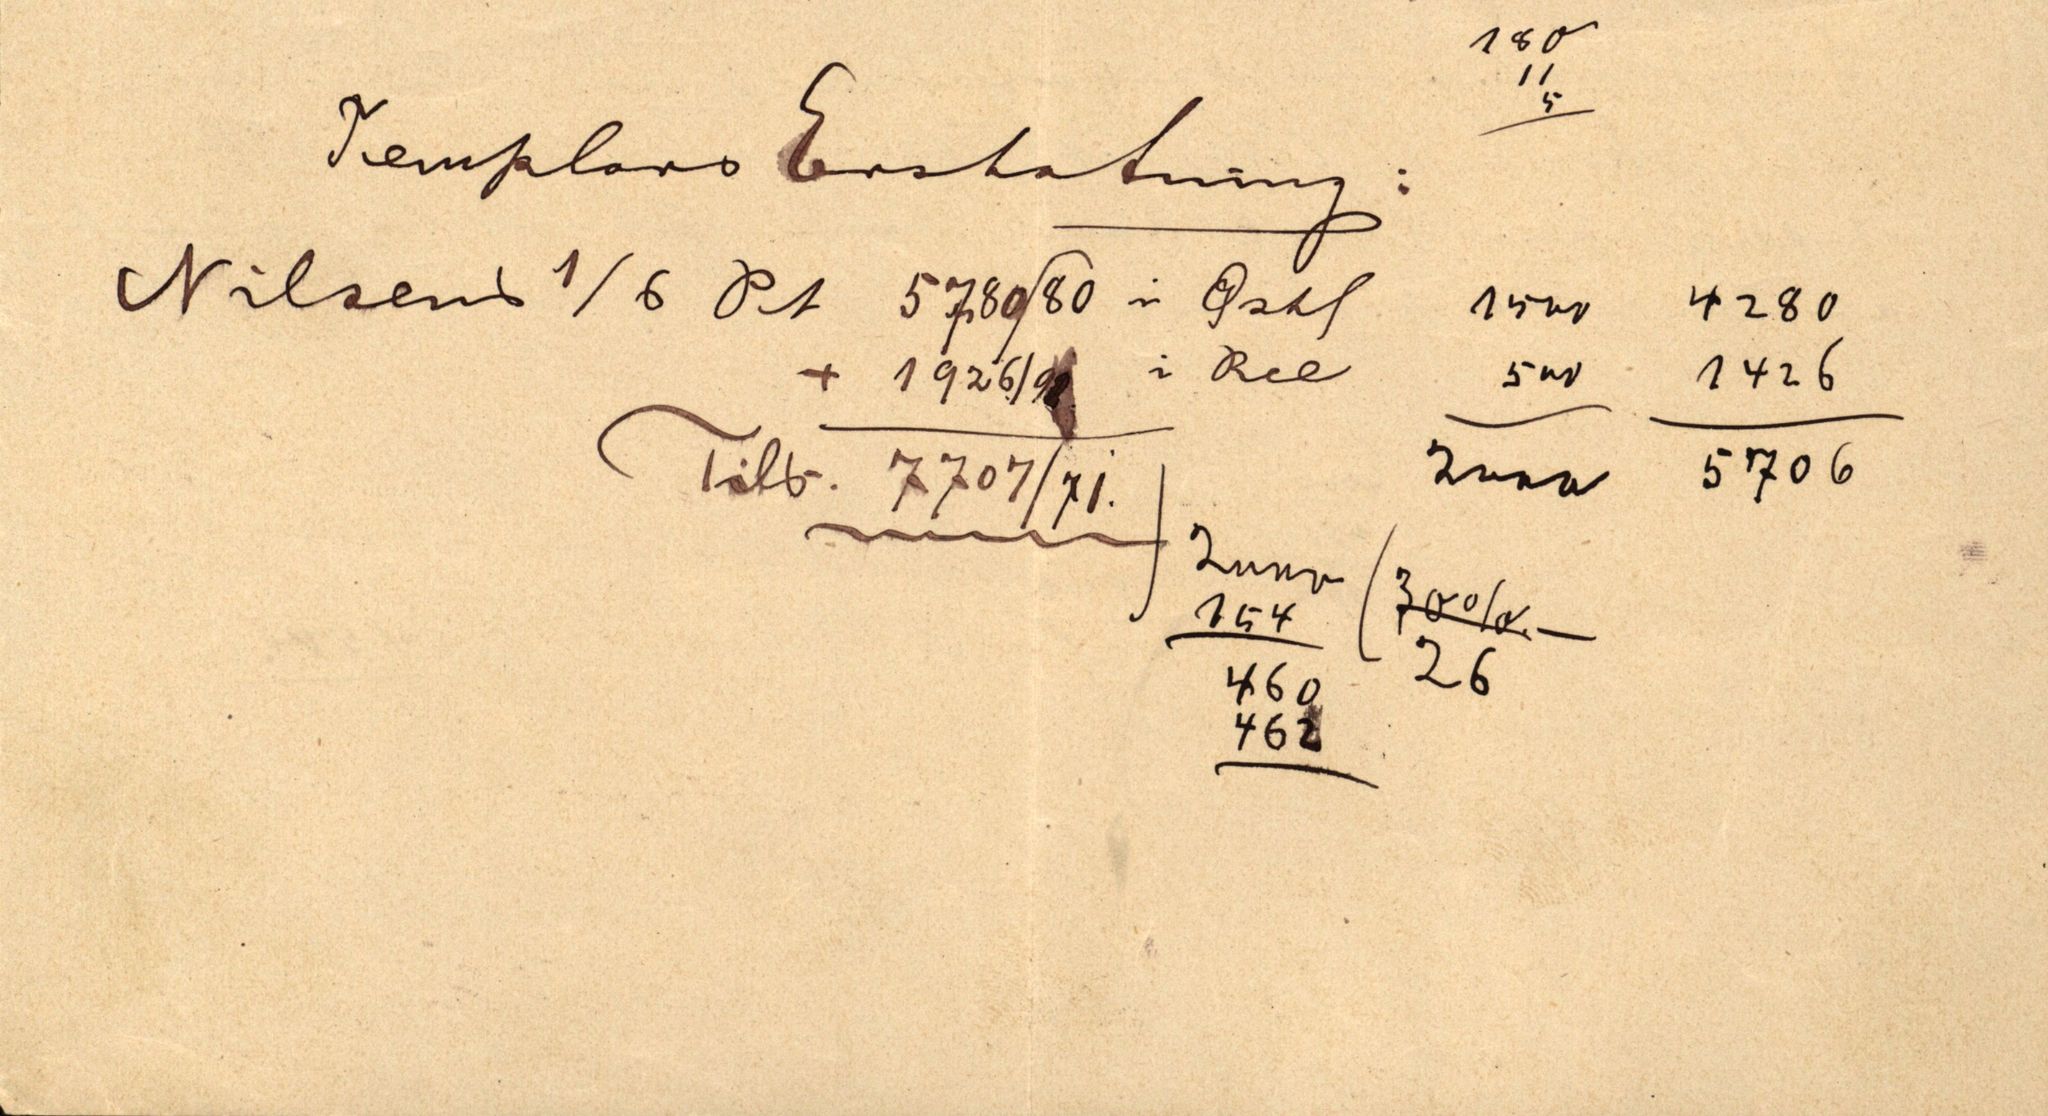 180
11
5
Templars Erstatning :
Nilsens 1/6 Pt 5780/80 i Østl 1500 4280
+ 1926/91 i Ree 500 1426
Tils. 7707/71. 2000 5706
2000
154 30%.
460 26
462